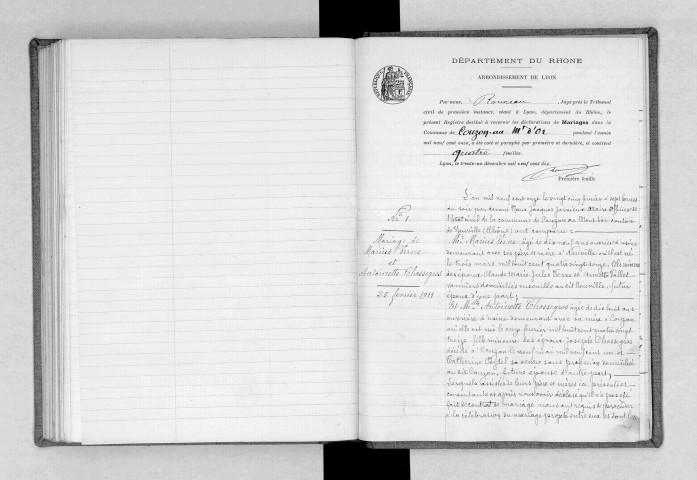 DÉPARTEMENT DU RHONE
ARRONDISSEMENT DE LYON
Par nous, Juge près le Tribunal
civil de première instance, séant à Lyon, département du Rhône, le
présent Registre destiné à recevoir les déclarations de Mariages dans la
Commune de Couzon au Mt d'Or pendant l'année
mil neuf cent onze, a été coté et paraphé par première et dernière, et contient
quatre feuilles.
Lyon, le trente-un décembre mil neuf cent dix.
Première feuille
No 1
Mariage de
Marius Verne
et
Antoinette Chossigros
25 février 1911
L'an mil neuf cent onze le vingt cinq février à sept heures
du soir par devant Nous Jacques maire officier de
l'état civil de la commune de Couzon au Mont d'or canton
de Neuville (Rhône) ont comparu :
Mr Marius Verne âgé de dix neuf ans ouvrier d'usine
demeurant avec ses père et mère à Neuville où il est né
le trois mars mil huit cent quatre vingt douze, fils mineur
des époux Claude Marie Jules Verne et Annette
domiciliés ensemble au dit Neuville, futur
époux d'une part;
Et Mlle Antoinette Chossigros âgée de dix huit ans
ouvrière d'usine demeurant avec sa mère à Couzon
où elle est née le onze février mil huit cent quatre vingt
treize, fille mineure des époux Joseph Chossigros
décédé à Couzon le neuf mil neuf cent un et
Catherine sa veuve sans profession domiciliée
au dit Couzon, future épouse d'autre part;
Lesquels assistés de leurs père et mères ici présents et
consentants et après nous avoir déclaré qu'il n'a pas été
fait de contrat de mariage nous ont requis de procéder
à la célébration du mariage projeté entre eux et dont les